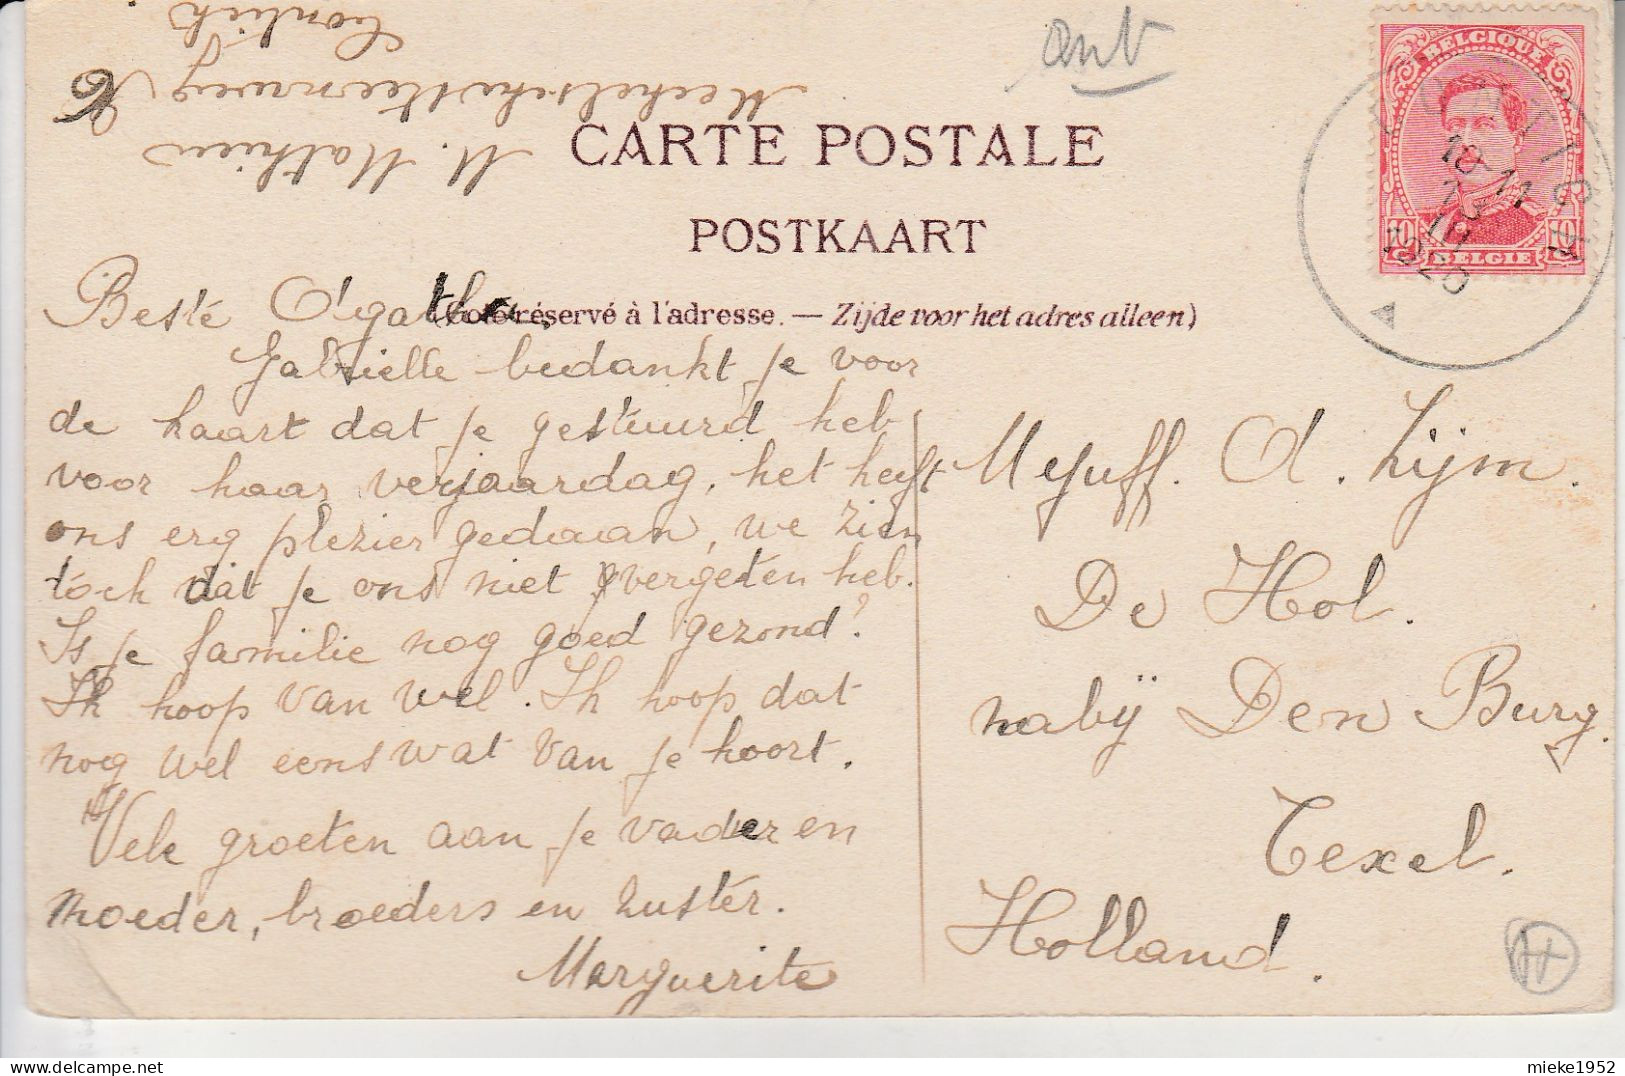 Contich
Mechelschesteenweg
M. Mathieu
Ant
BELGIQUE
10 10
BELGIE
CONTICH
10-11
III
1920
A
CARTE POSTALE
POSTKAART
(Côté réservé à l'adresse. — Zijde voor het adres alleen)
Besté Agathe.
Gabrielle bedankt je voor
de kaart dat je gestuurd heb
voor haar verjaardag, het heeft
ons erg plezier gedaan, we zien
toch dat je ons niet vergeten heb.
Is je familie nog goed gezond?
Ik hoop van wel. Ik hoop dat
nog wel eens wat van je hoort.
Vele groeten aan je vader en
moeder, broeders en zuster.
Marguerite
Mejuff. A. Lijm.
De Hol.
nabij Den Burg.
Texel.
Holland.
H
mieke1952